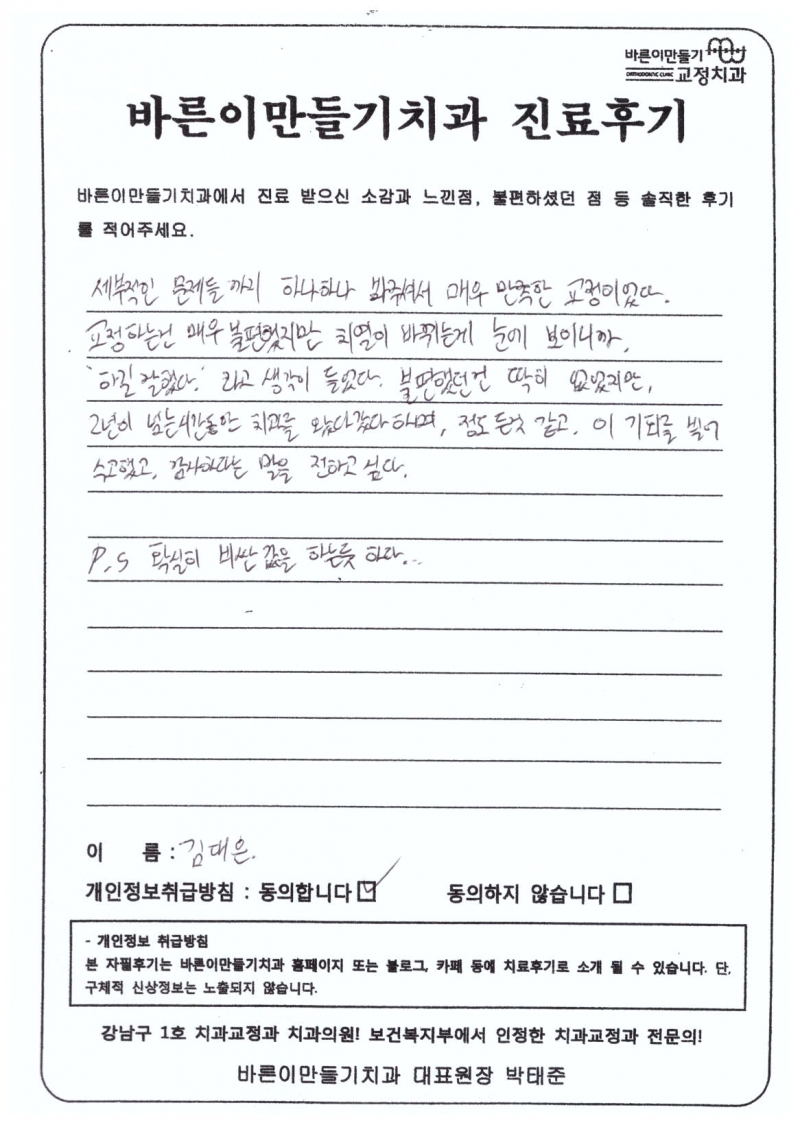 바른이만들기
ORTHODONTIC CLINIC 교정치과
바른이만들기치과 진료후기
바른이만들기치과에서 진료 받으신 소감과 느낀점, 불편하셨던 점 등 솔직한 후기
를 적어주세요.
세부적인 문제들 까지 하나하나 봐주셔서 매우 만족한 교정이었다.
교정하는건 매우 불편했지만 치열이 바뀌는게 눈에 보이니까,
'하길 잘했다.' 라고 생각이 들었다. 불편했던건 딱히 없었지만,
2년이 넘는시간동안 치과를 왔다갔다 하며, 정도 든것 같고. 이 기회를 빌어
수고했고, 감사하다는 말을 전하고 싶다.
P.S 확실히 비싼 값을 하는듯 하다...
이 름 : 김대은.
개인정보취급방침 : 동의합니다 ☑ 동의하지 않습니다 □
- 개인정보 취급방침
본 자필후기는 바른이만들기치과 홈페이지 또는 블로그, 카페 등에 치료후기로 소개 될 수 있습니다. 단,
구체적 신상정보는 노출되지 않습니다.
강남구 1호 치과교정과 치과의원! 보건복지부에서 인정한 치과교정과 전문의!
바른이만들기치과 대표원장 박태준